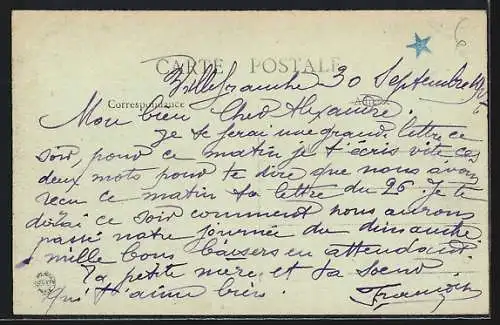 CARTE POSTALE
Villefranche 30 Septembre
Correspondance Adresse
Mon bien Cher Alexandre.
je te ferai une grande lettre ce
soir, pour ce matin je t'écris vite ces
deux mots pour te dire que nous avons
recu ce matin ta lettre du 26. Je te
dirai ce soir comment nous aurons
passé notre journée du dimanche
mille bons baisers en attendant.
Ta petite mère et ta Soeur
Qui t'aime bien.